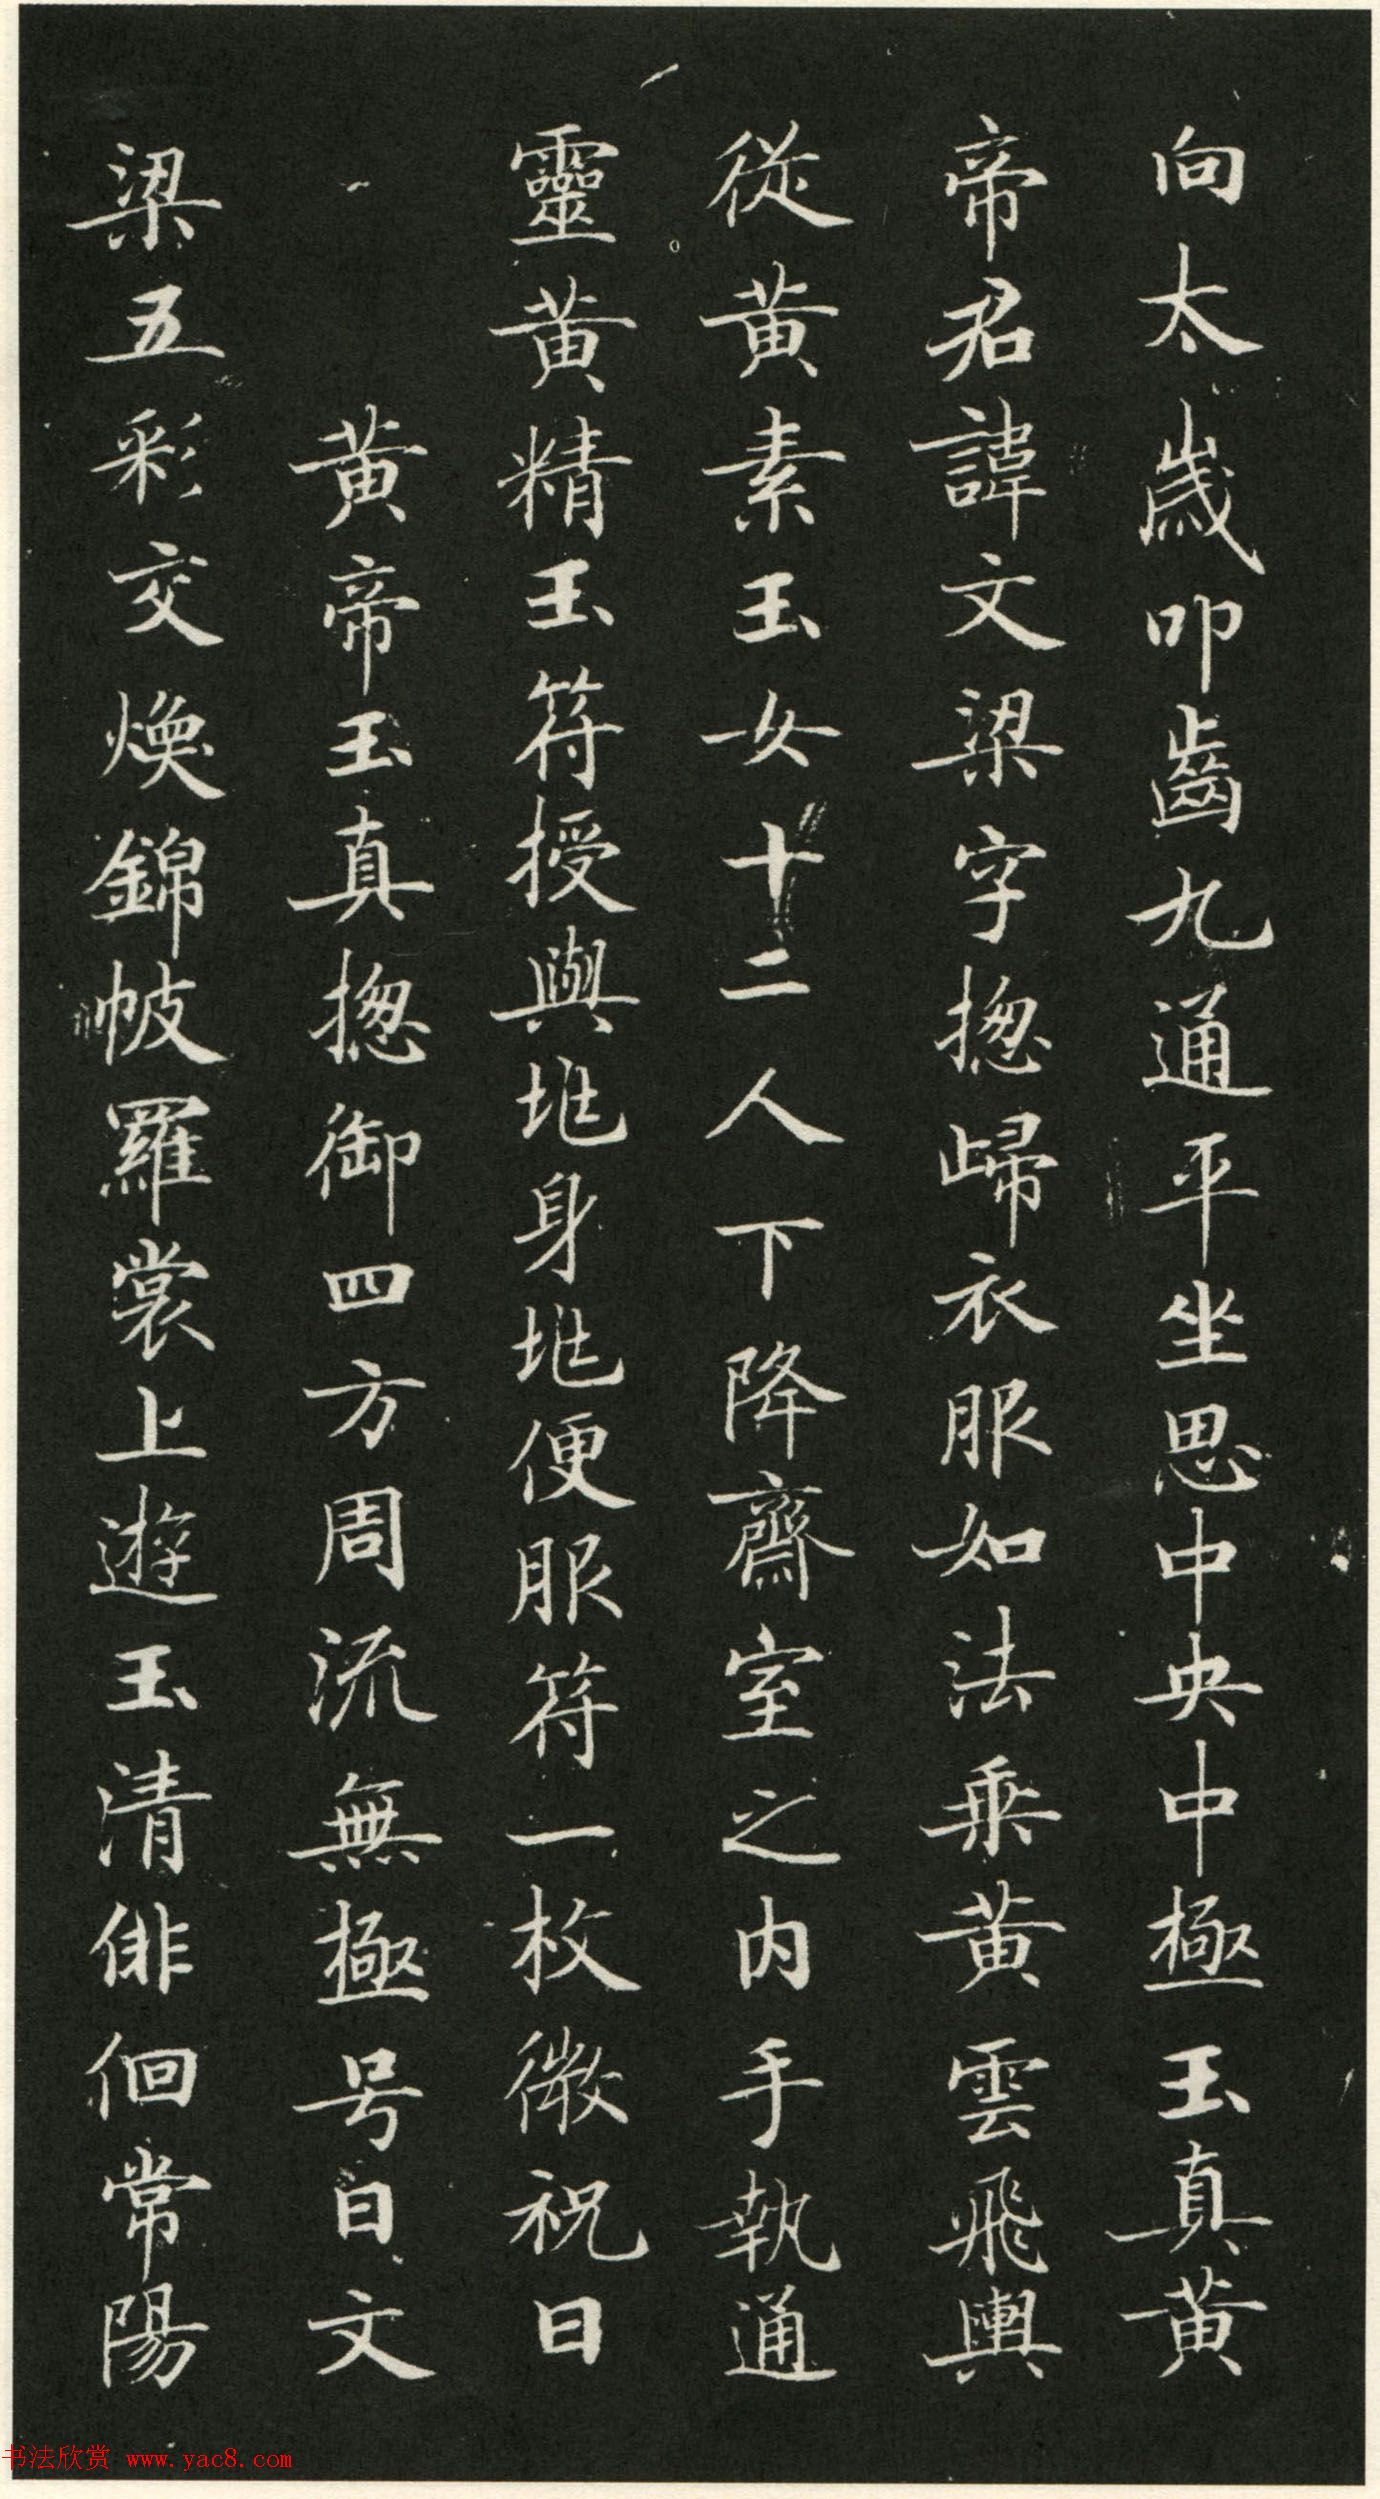 向太歲叩齒九通平坐思中央中極玉真黃
帝君諱文梁字揔歸衣服如法乗黃雲飛輿
從黃素玉女十二人下降齋室之内手執通
靈黃精玉符授與兆身兆便服符一枚微祝曰
黃帝玉真揔御四方周流無極号曰文
梁五彩交煥錦帔羅裳上遊玉清俳徊常陽
书法欣赏 www.yac8.com